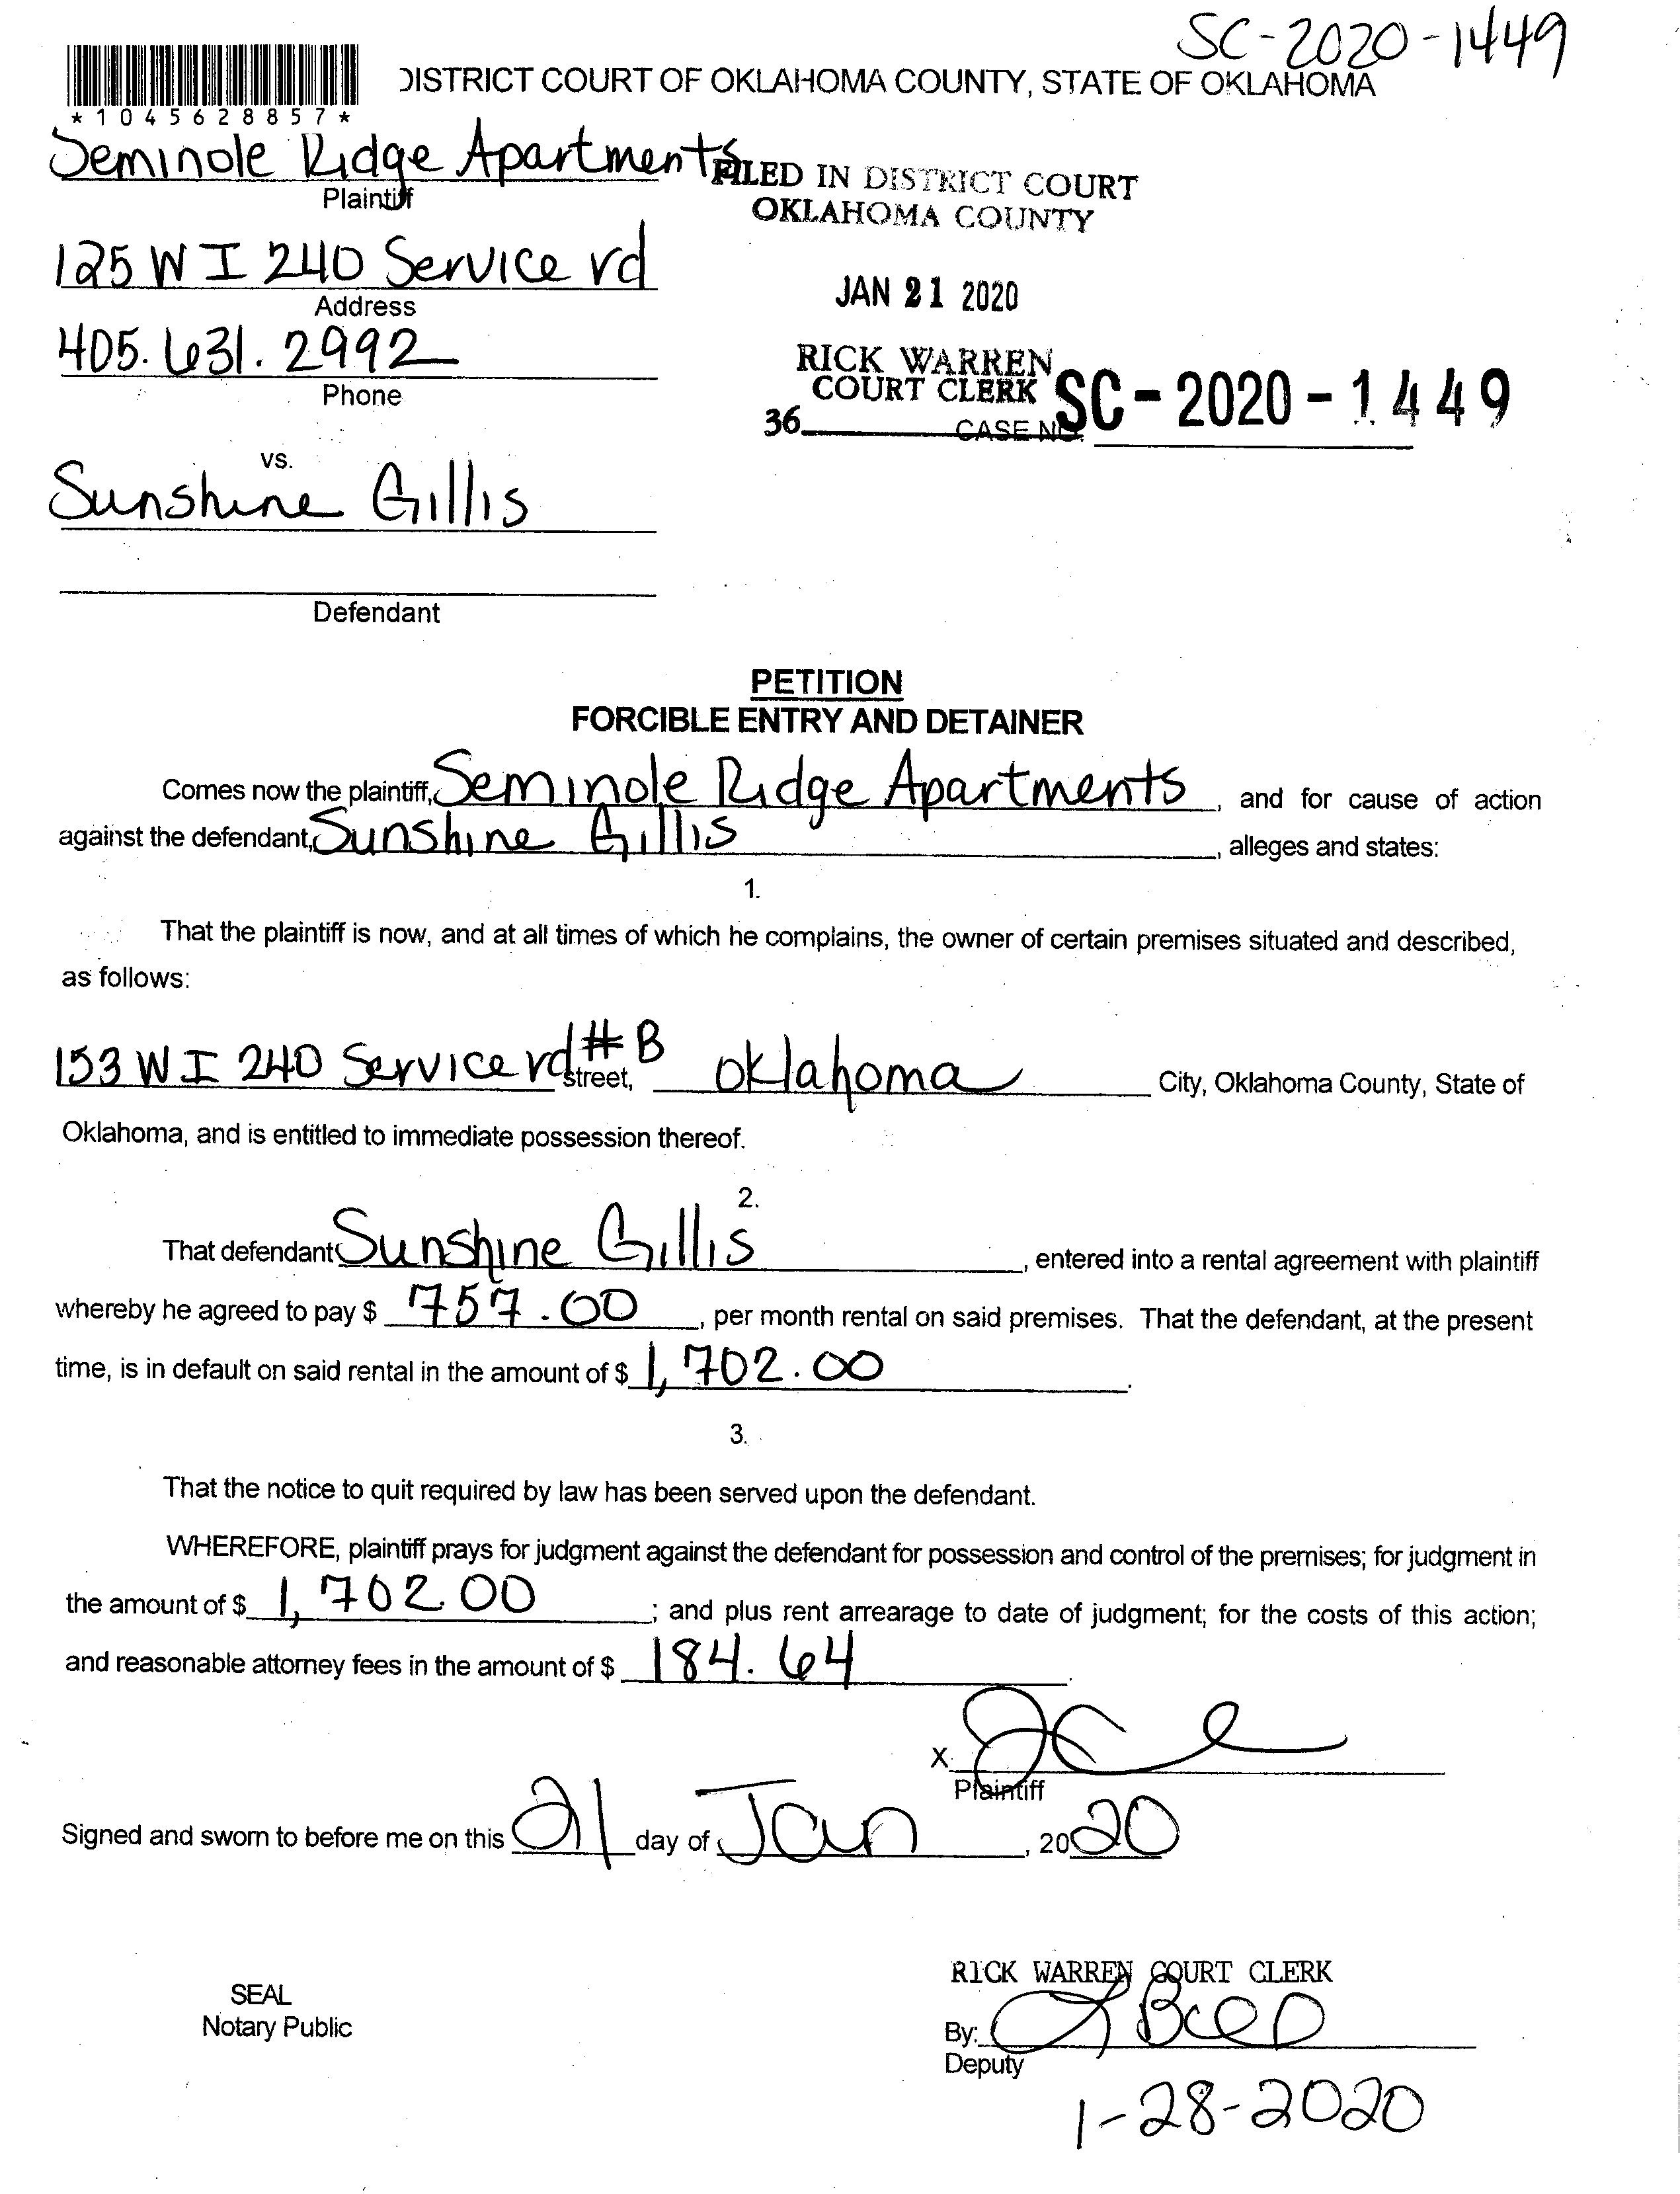 SC-2020-1449
DISTRICT COURT OF OKLAHOMA COUNTY, STATE OF OKLAHOMA
*1045628857*
Seminole Ridge Apartments
Plaintiff
FILED IN DISTRICT COURT
OKLAHOMA COUNTY
125 W I 240 Service rd
Address
JAN 21 2020
405.631.2992
Phone
RICK WARREN
COURT CLERK
36
CASE NO. SC-2020-1449
vs.
Sunshine Gillis
Defendant
PETITION
FORCIBLE ENTRY AND DETAINER
Comes now the plaintiff, Seminole Ridge Apartments, and for cause of action
against the defendant, Sunshine Gillis, alleges and states:
1.
That the plaintiff is now, and at all times of which he complains, the owner of certain premises situated and described,
as follows:
153 W I 240 Service rd #B street, Oklahoma City, Oklahoma County, State of
Oklahoma, and is entitled to immediate possession thereof.
2.
That defendant Sunshine Gillis, entered into a rental agreement with plaintiff
whereby he agreed to pay $ 757.00, per month rental on said premises. That the defendant, at the present
time, is in default on said rental in the amount of $ 1,702.00.
3.
That the notice to quit required by law has been served upon the defendant.
WHEREFORE, plaintiff prays for judgment against the defendant for possession and control of the premises; for judgment in
the amount of $ 1,702.00; and plus rent arrearage to date of judgment; for the costs of this action;
and reasonable attorney fees in the amount of $ 184.64.
X
Plaintiff
Signed and sworn to before me on this 21 day of Jan, 2020
SEAL
Notary Public
RICK WARREN COURT CLERK
By:
Deputy
1-28-2020